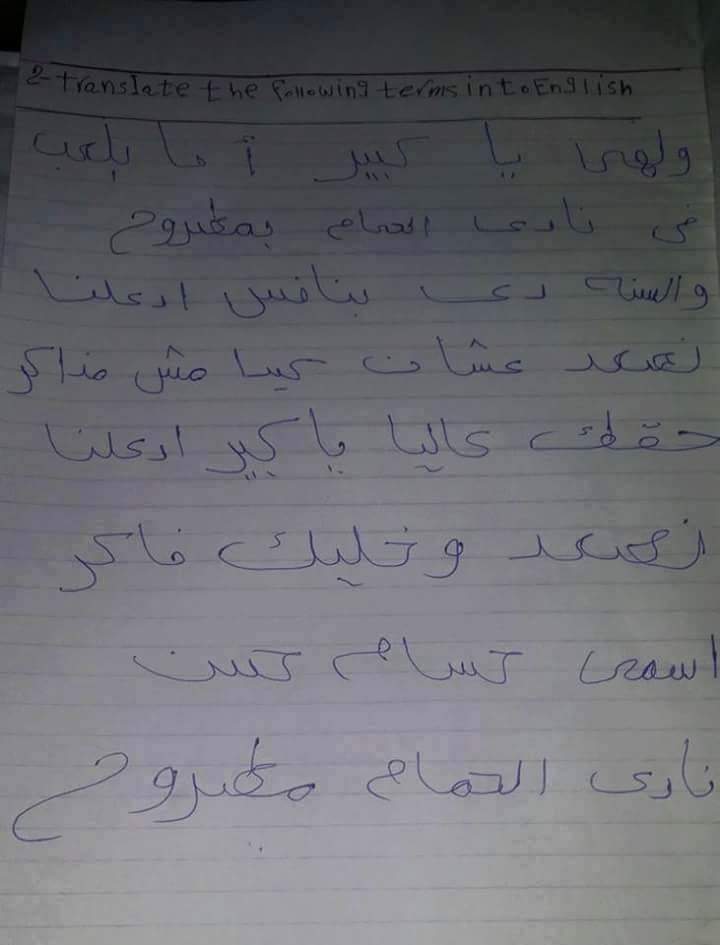 2- translate the following terms into English
ولهى يا كبير أما بلعب
فى نادى الحمام بمطروح
والسنه دى بنافس ادعلنا
نصعد عشان كيدا مش مذاكر
حقك عاليا يا كبير ادعلنا
نصعد وخليك فاكر
اسمى حسام حسن
نادى الحمام مطروح